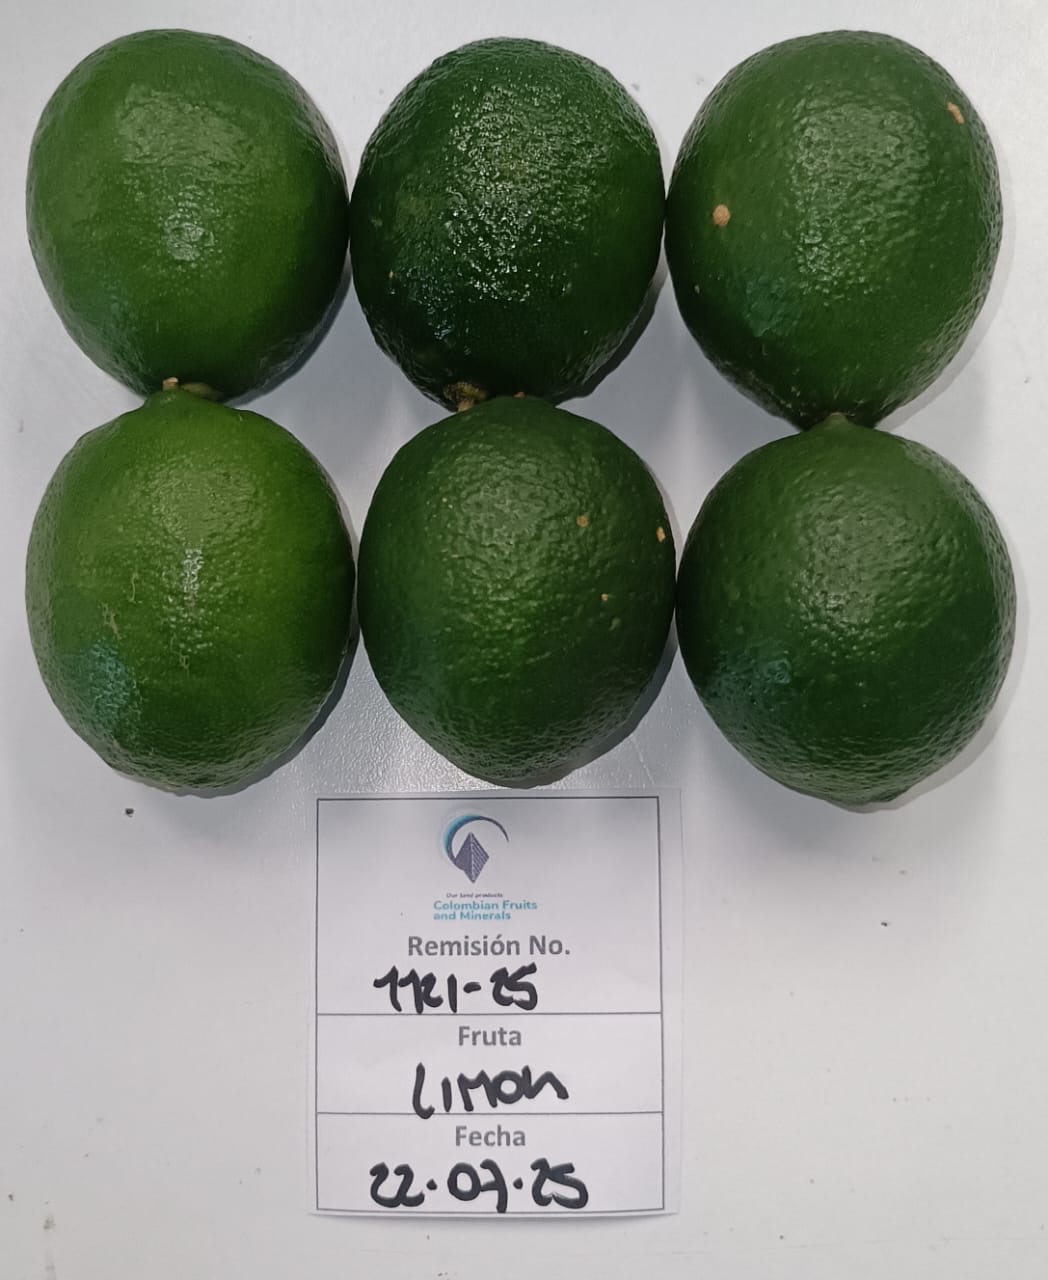 Our land products
Colombian Fruits
and Minerals
Remisión No.
1121-25
Fruta
LIMON
Fecha
22.07.25